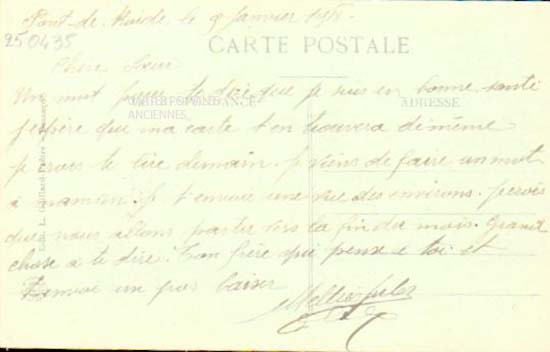 Pont-de-Roide le 9 Janvier 1915.
250435
CARTE POSTALE
Chere Sœur
CORRESPONDANCE
ADRESSE
ANCIENNES
Un mot pour te dire que je suis en bonne santé
j'espère que ma carte t'en trouvera de même
je vais te lire demain. je viens de faire un mot
à maman. Je t'envoie une vue des environs. Je crois
que nous allons partir vers la fin du mois. Grand
chose à te dire. Ton frère qui pense à toi et
t'envoie un gros baiser